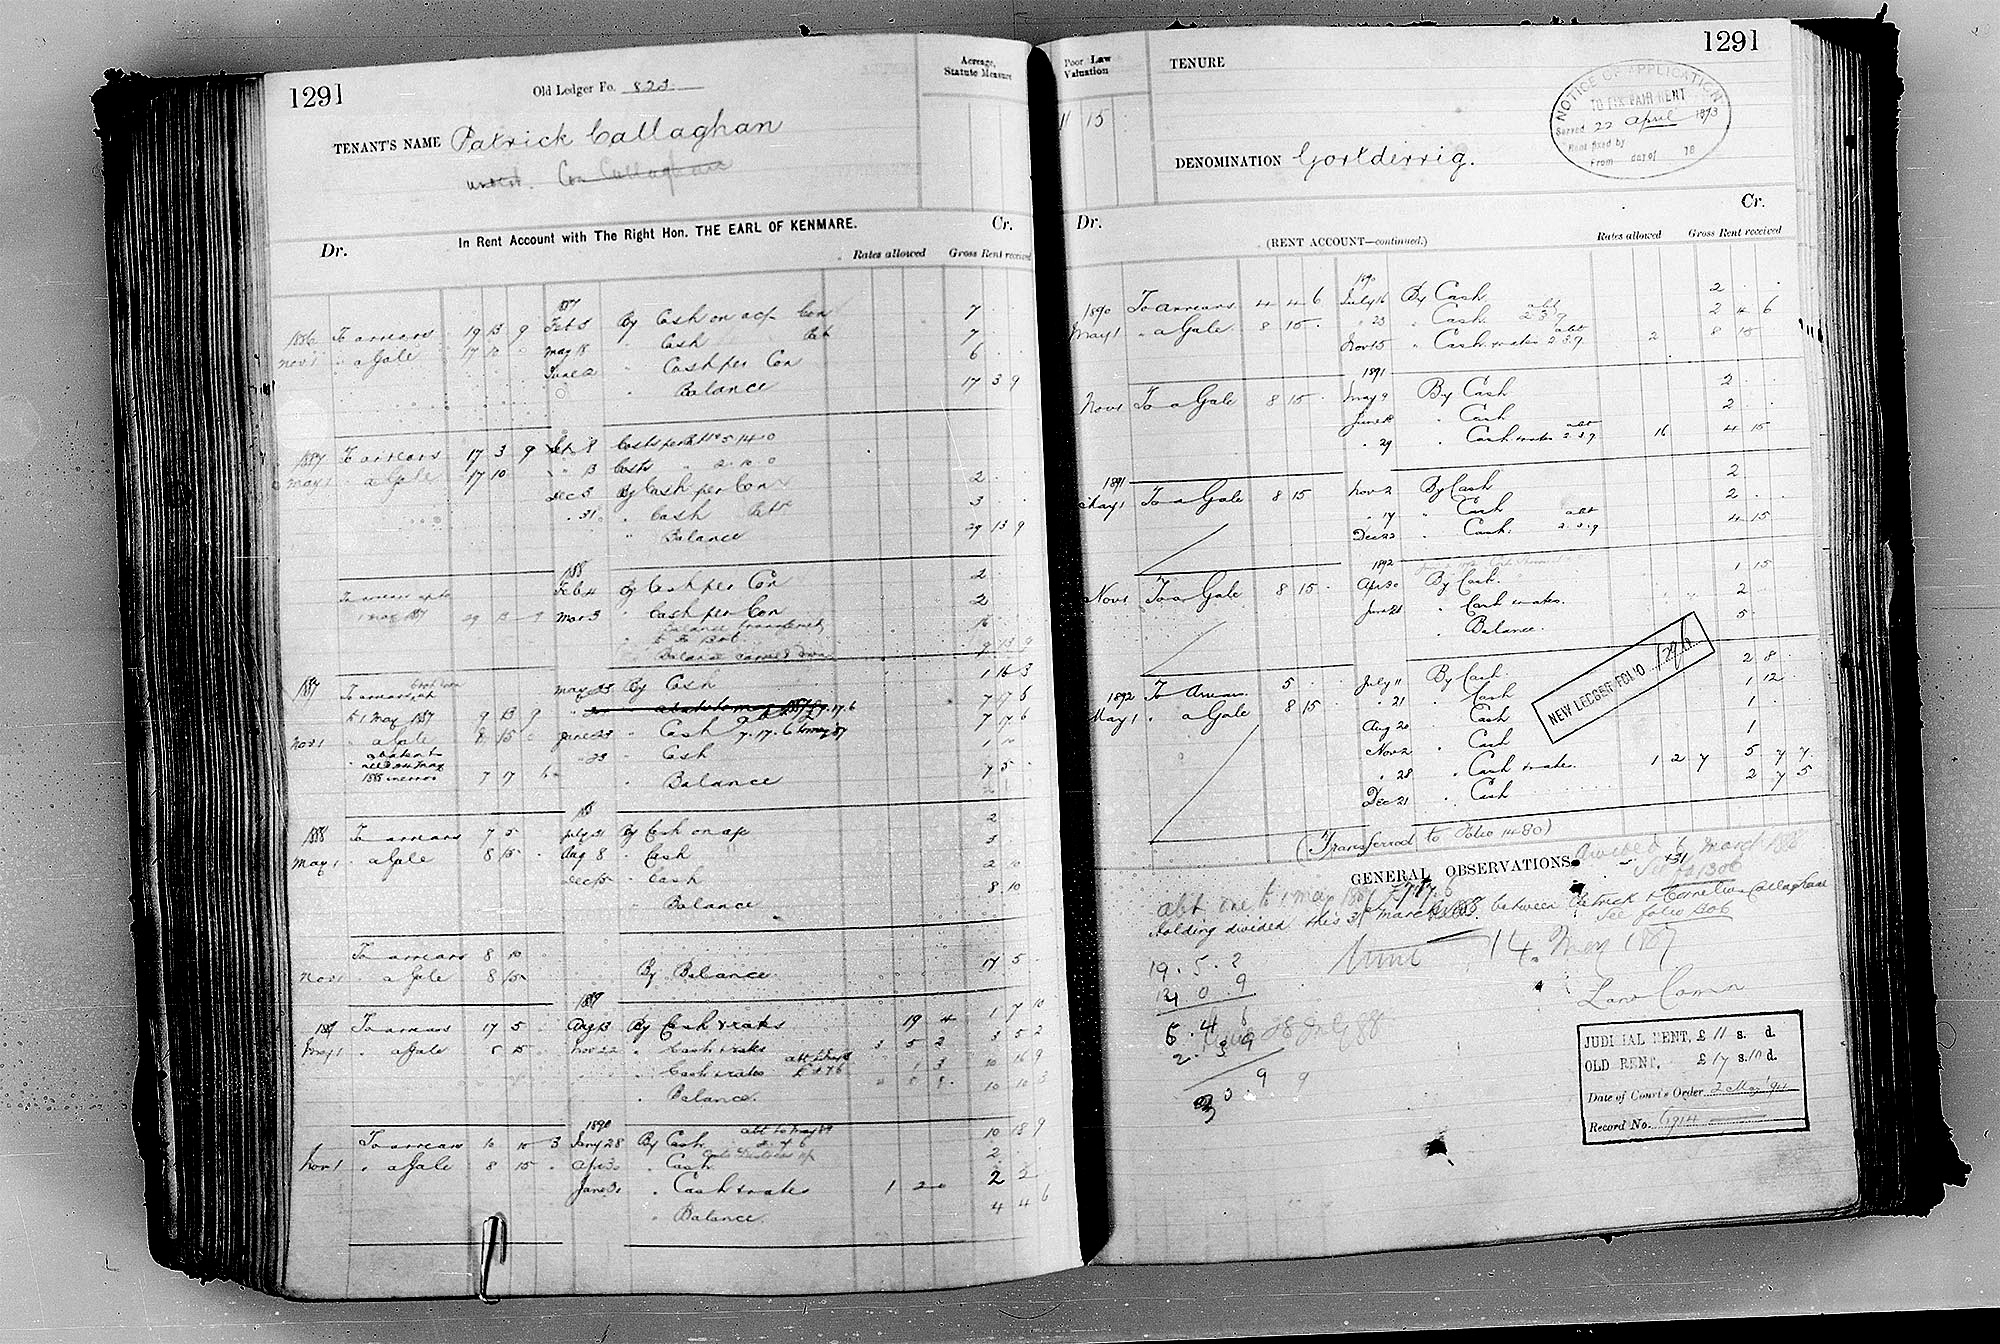 1291
Old Ledger Fo. 823
Acreage, Statute Measure
TENANT'S NAME Patrick Callaghan
Con Callaghan
In Rent Account with The Right Hon. THE EARL OF KENMARE.
Dr. Cr.
Rates allowed Gross Rent received
1887
1886 To arrears 19 13 9 Feb 5 By Cash on a/c Con 7
Nov 1 " a Gale 17 10 May 18 " Cash 7
June 2 " Cash per Con 6
" Balance 17 3 9
1887 To arrears 17 3 9 8 Costs 5.14.0
May 1 " a Gale 17 10 " 13 Costs " 2.10.0
Dec 5 By Cash per Con 2
" 31 " Cash 3
" Balance 29 13 9
1888
To arrears up to Feb 4 By Cash per Con 2
1 May 1887 29 13 9 Mar 3 " Cash per Con 2
Balance transferred 16
to Fo 1306
Balance carried down 9 13 9
1887 To arrears May 23 By Cash 1 16 3
to 1 May 1887 9 13 9 7 17 6
Nov 1 " a Gale 8 15 June 23 " Cash 7.17.6 to May 87 7 17 6
" 23 " Cash 1
1888 in error 7 7 6 " Balance 7 5
1888 To arrears 7 5 July 21 By Cash on a/c 2
May 1 " a Gale 8 15 Aug 8 " Cash 3
Dec 15 " Cash 2 10
" Balance 8 10
To arrears 8 10
Nov 1 " a Gale 8 15 By Balance 17 5
1889
1889 To arrears 17 5 Aug 13 By Cash & rates 19 4 1 7 10
May 1 " a Gale 8 15 Nov 22 " Cash & rates 3 5 2 3 5 2
" Cash & rates 1 3 10 16 9
" Balance. 10 10 3
1890
To arrears 10 10 3 Jany 28 By Cash abt to May 89 10 18 9
Nov 1 " a Gale 8 15 Apr 30 " Cash 2
June 30 " Cash & rates 1 2 2 2
" Balance. 4 4 6
1291
Poor Law Valuation
11 15
TENURE
NOTICE OF APPLICATION
TO FIX FAIR RENT
Served 22 April 1893
Rent fixed by
From day of 18
DENOMINATION Gortderrig.
Dr. Cr.
(RENT ACCOUNT—continued.)
Rates allowed Gross Rent received
1890
1890 To arrears 4 4 6 July 16 By Cash 2
May 1 " a Gale 8 15 " 23 " Cash abt 2.3.9 2 4 6
Nov 15 " Cash & rates abt 2.3.9 2 8 15
1891
Nov 1 To a Gale 8 15 May 9 By Cash 2
June " Cash 2
" 29 " Cash & rates abt 2.3.9 16 4 15
1891
May 1 To a Gale 8 15 Nov 2 By Cash 2
" 17 " Cash 2
Dec 22 " Cash. abt 2.3.9 4 15
1892
Nov 1 To a Gale 8 15 Apr 30 By Cash. 1 15
June 21 " Cash & rates. 2
" Balance. 5
NEW LEDGER FOLIO 1296
1892 To Arrears 5 July 11 By Cash 2 8
May 1 " a Gale 8 15 " 21 " Cash 1 12
Aug 20 " Cash 1
Nov 2 " Cash 1
" 28 " Cash & rates. 1 2 7 5 7 7
Dec 21 " Cash 2 7 5
(Transferred to Folio 1480)
GENERAL OBSERVATIONS
divided 6 March 1888
See fo 1306
abt due to 1 May 1887 £7.17.6
Holding divided this 31st March 1888 between Patrick & Cornelius Callaghan
See folio 1306
14 May 1887
Land Comn
19.5.2
9
6.4.6
2.3.9
28 July 88
JUDICIAL RENT, £ 11 s. d.
OLD RENT, £ 17 s. 10 d.
Date of Court's Order 2 May '94
Record No. 6914